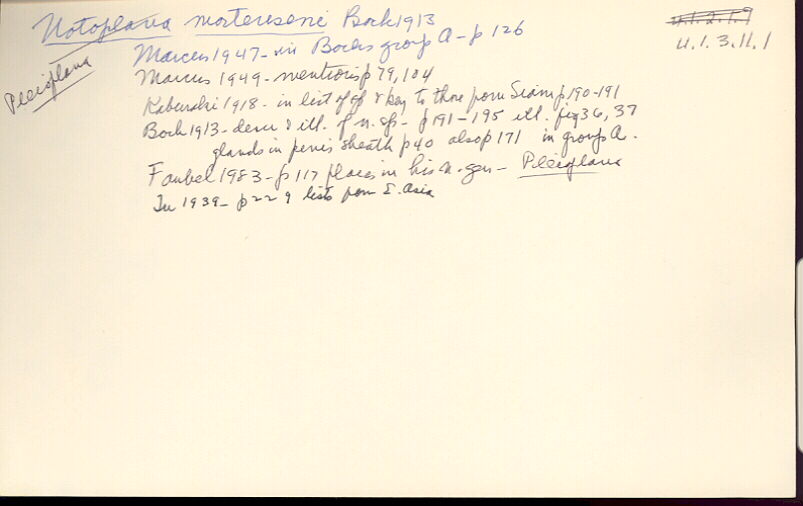 Notoplana mortenseni Bock 1913
4.1.2.1.9
4.1.3.11.1
Pleioplana
Marcus 1947 - in Bocks group A - p 126
Marcus 1949 - mentions p 79, 104
Kaburaki 1918 - in list of & key to those from Siam p 190-191
Bock 1913 - descr & ill. of n. sp. - p 191-195 ill. fig 36, 37
glands in penis sheath p 40 also p 171 in group A.
Faubel 1983 - p 117 places in his n. gen - Pleioplana
Tu 1939 - p 229 lists from E. Asia